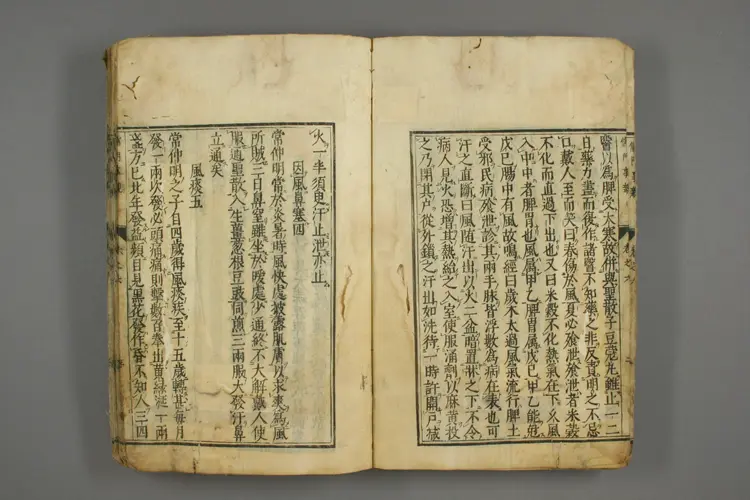 醫以為脾受大寒故併與聖散子豆蔻丸雖止一二
日藥力盡而復作諸醫不知藥之非反責明之不忌
口戴人至而笑曰春傷於風夏必飱泄飱泄者米穀
不化而直過下出也又曰米穀不化熱氣在下久風
入中中者脾胃也風属甲乙脾胃属戊己甲乙能尅
戊己腸中有風故鳴經曰歲木太過風氣流行脾土
受邪民病飱泄診其兩手脉皆浮數為病在表也可
汗之直斷曰風随汗出以火二盆暗置牀之下不令
病人見火恐增其熱紿之入室使服涌劑以麻黃投
之乃閉其戸從外鎖之汗出如洗待一時許開戸減
火一半須臾汗止泄亦止
因風鼻塞四
常仲明常於炎暑時風快處披露肌膚以求爽為風
所賊三日鼻窒雖坐於暖處少通終不大解戴人使
服通聖散入生薑葱根豆豉同煎三兩服大發汗鼻
立通矣
風痰五
常仲明之子自四歲得風痰疾至十五歲轉甚每月
發一兩次發必頭痛痛則擊數百拳出黃綠涎一兩
盞方已比年發益頻目見黑花發作昏不知人三四